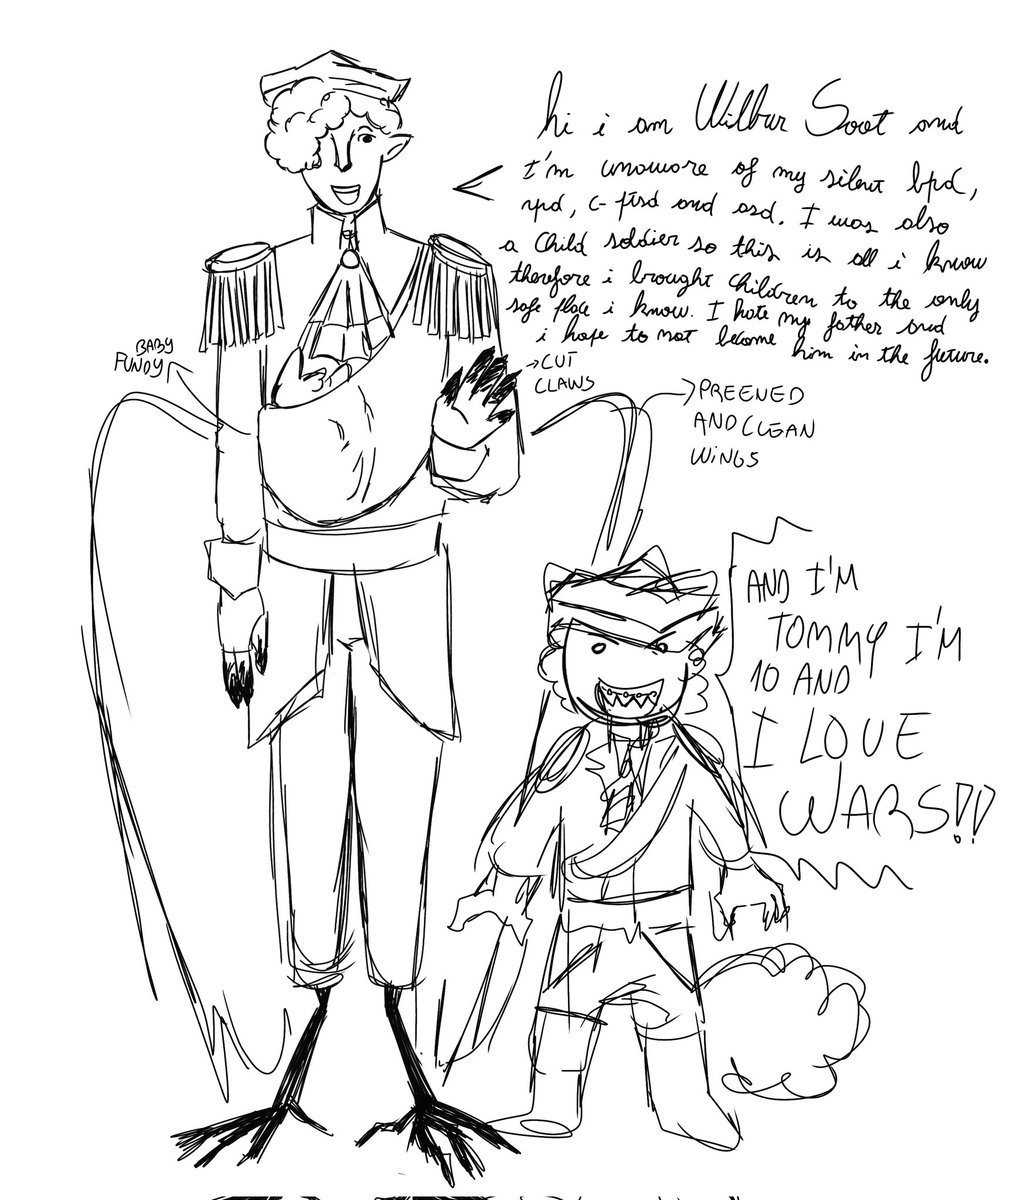 hi i am Wilbur Soot and
I'm unaware of my silent bpd,
npd, c-ptsd and asd. I was also
a child soldier so this is all i know
therefore i brought children to the only
safe place i know. I hate my father and
i hope to not become him in the future.
BABY
FUNDY
CUT
CLAWS
PREENED
AND CLEAN
WiNGS
AND I'M
TOMMY I'M
10 AND
I LOVE
WARS!!